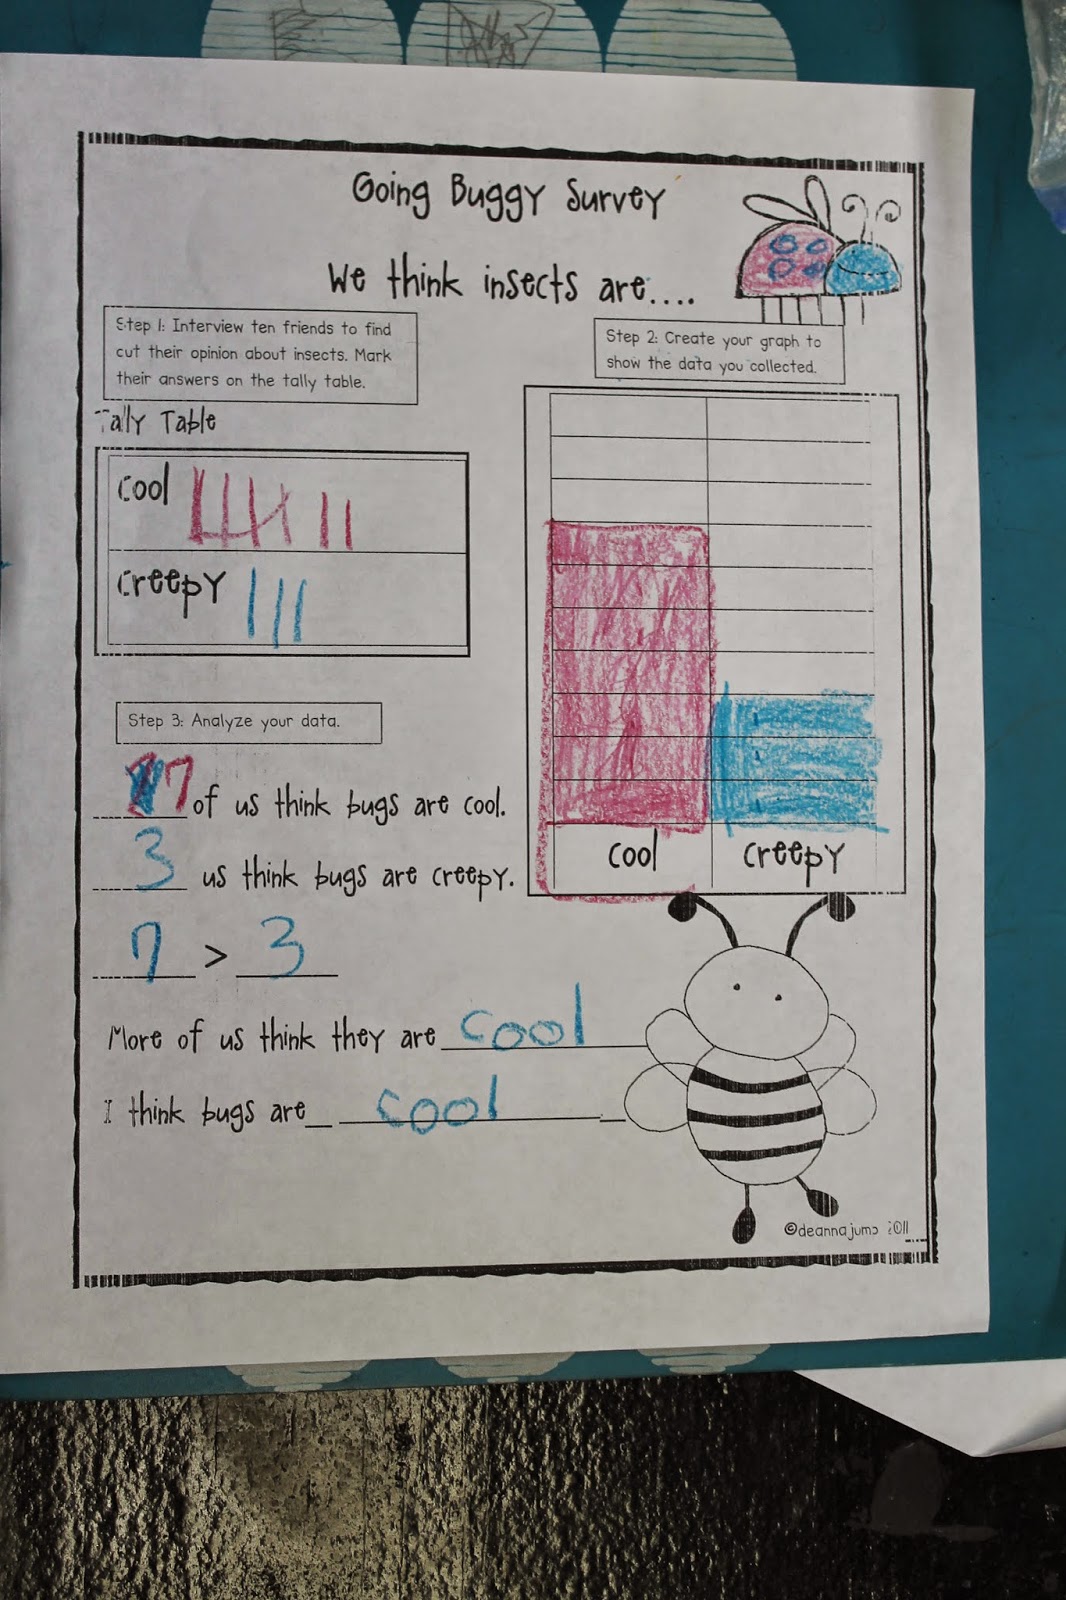 Going Buggy Survey
We think insects are....
Step 1: Interview ten friends to find
cut their opinion about insects. Mark
their answers on the tally table.
Step 2: Create your graph to
show the data you collected.
Tally Table
cool
creepy
cool creepy
Step 3: Analyze your data.
7 of us think bugs are cool.
3 us think bugs are creepy.
7 > 3
More of us think they are cool
I think bugs are cool
©deannajump 2011